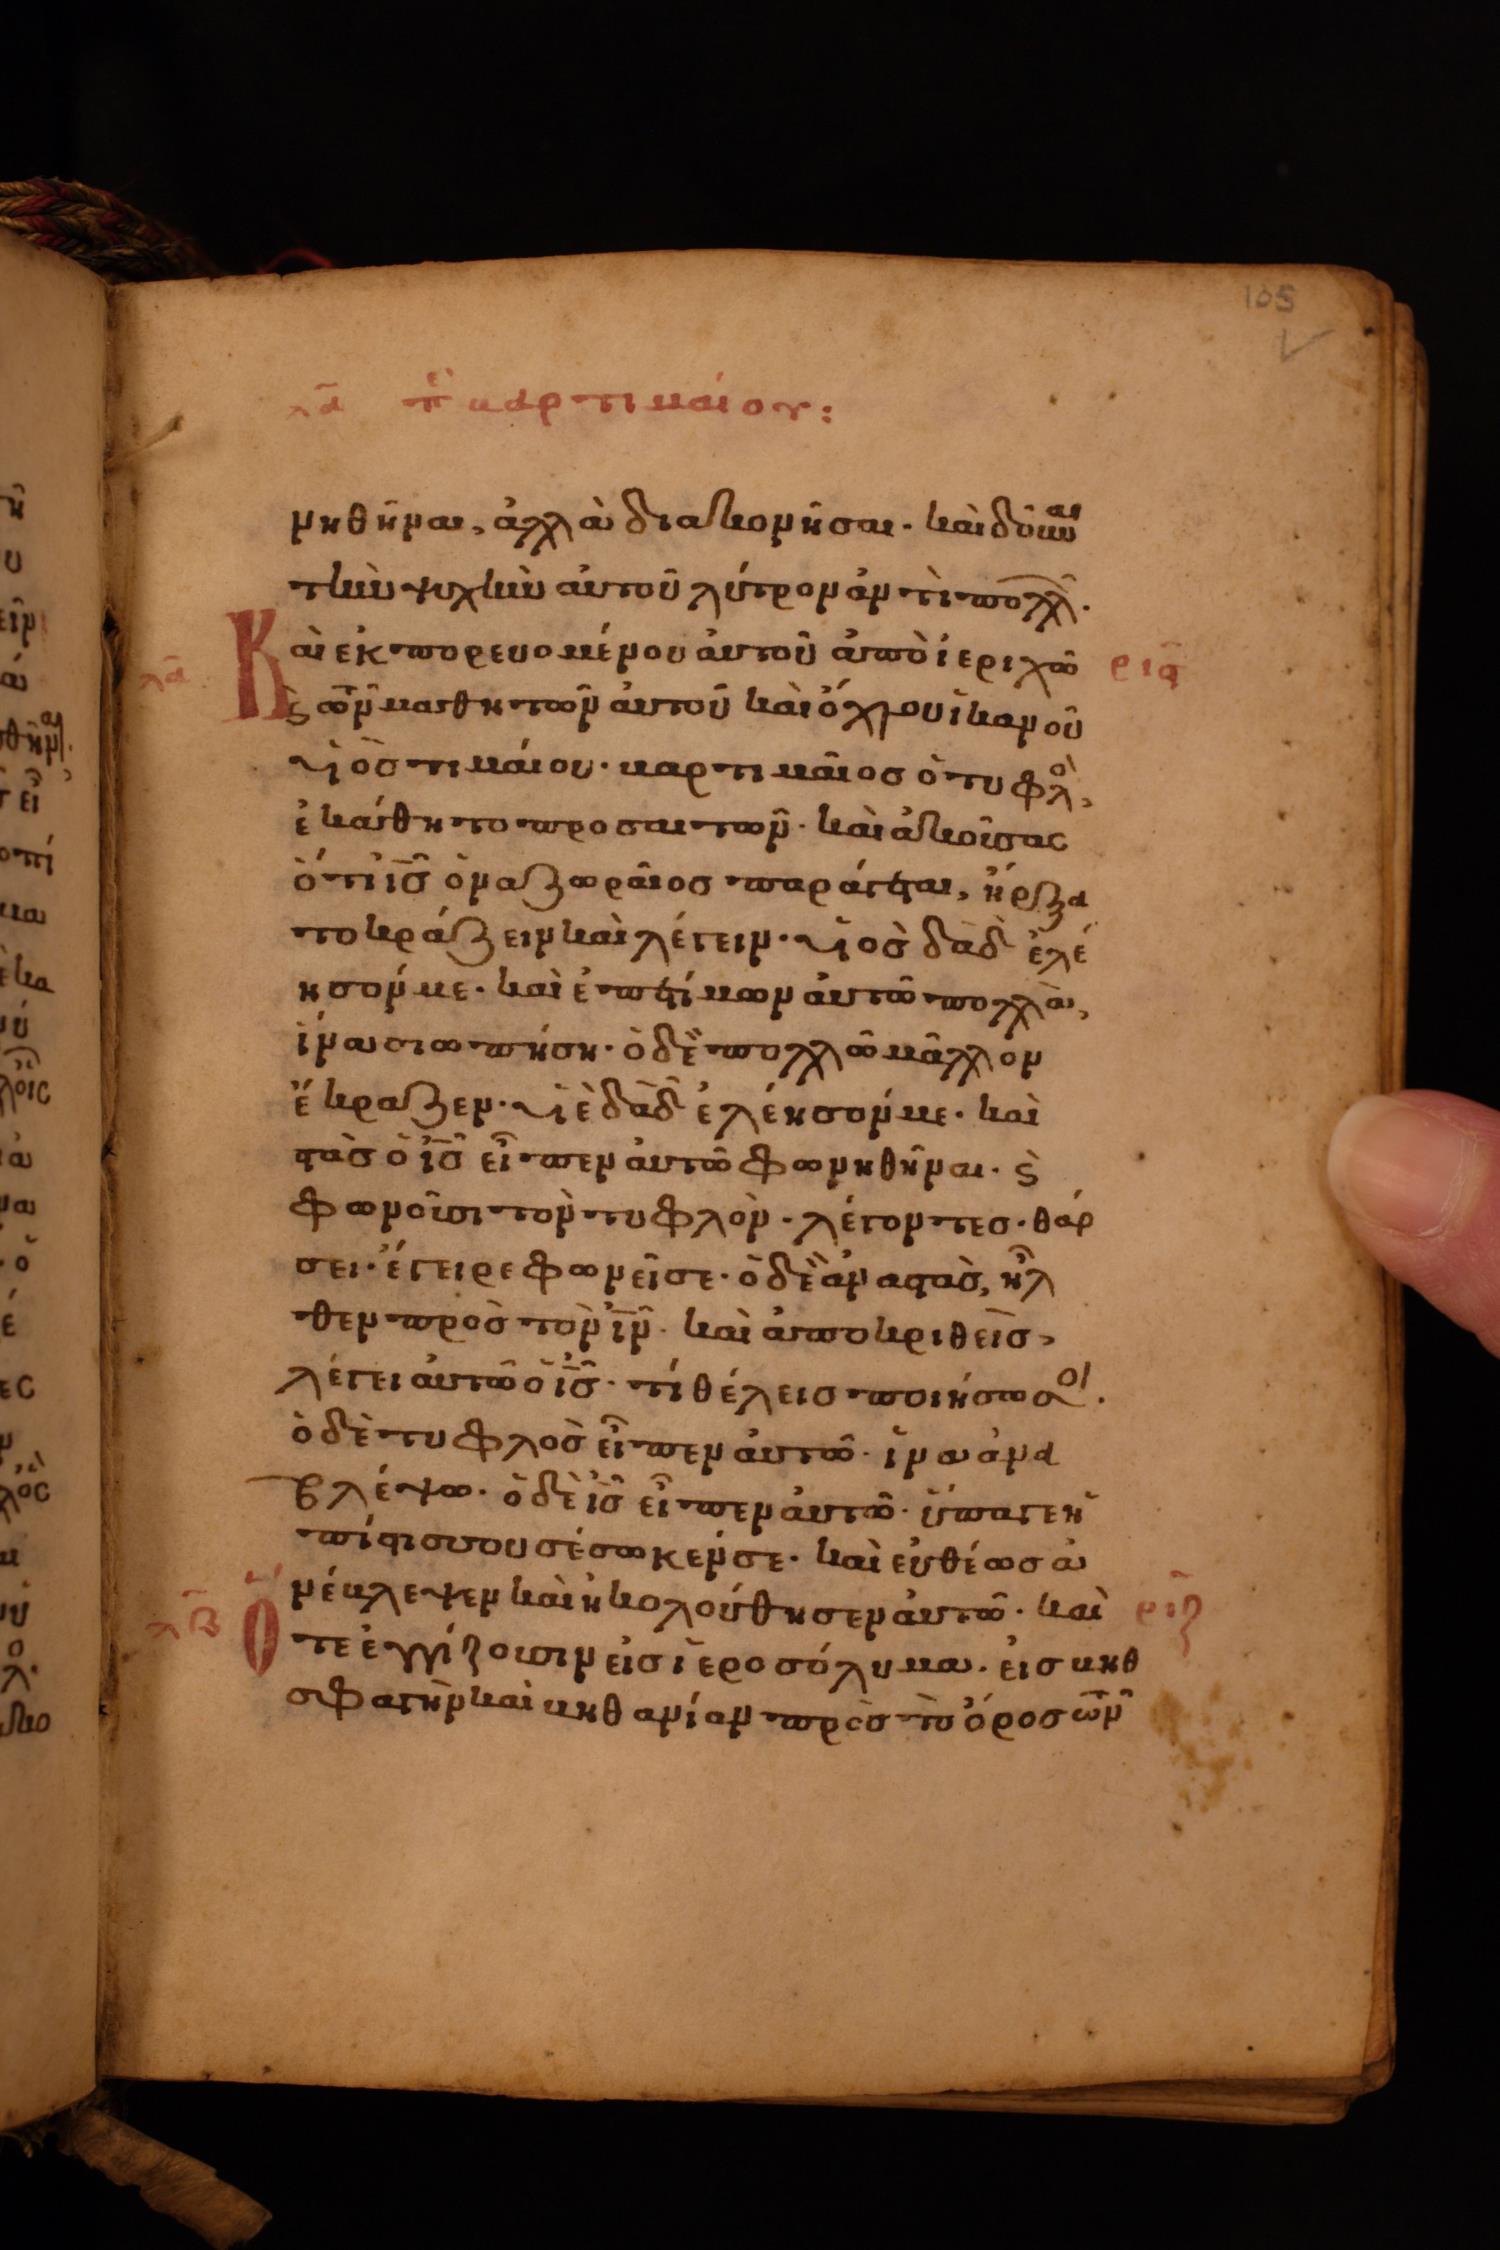 105
λα π βαρτιμαίου:
νηθῆναι, ἀλλὰ διακονῆσαι· καὶ δοῦναι
τὴν ψυχὴν αὐτοῦ λύτρον ἀντὶ πολλῶν.
Καὶ ἐκπορευομένου αὐτοῦ ἀπὸ ἱεριχῶ
ϛ τῶν μαθητῶν αὐτοῦ καὶ ὄχλου ἱκανοῦ
υἱὸς τιμαίου· βαρτιμαῖος ὁ τυφλὸ,
ἐκάθητο προσαιτῶν· καὶ ἀκούσας
ὅτι ἰς ὁ ναζωραῖος παράγεται, ἤρξα
το κράζειν καὶ λέγειν· υἱὸς δαδ ἐλέ
ησόν με· καὶ ἐπετίμων αὐτῶ πολλὰ,
ἵνα σιωπήση· ὁ δὲ πολλῶ μᾶλλον
ἔκραζεν· υἱὲ δαδ ἐλέησόν με· καὶ
στὰς ὁ ἰς εἶπεν αὐτῶ φωνηθῆναι· ϛ
φωνοῦσι τὸν τυφλὸν· λέγοντες· θάρ
σει· ἔγειρε φωνεῖ σε· ὁ δὲ ἀναστὰς, ἦλ
θεν πρὸς τὸν ἰν· καὶ ἀποκριθεὶς,
λέγει αὐτῶ ὁ ἰς· τί θέλεις ποιήσω σοι.
ὁ δὲ τυφλὸς εἶπεν αὐτῶ· ἵνα ἀνα
βλέψω· ὁ δὲ ἰς εἶπεν αὐτῶ· ὕπαγε ἡ
πίστις σου σέσωκέν σε· καὶ εὐθέως ἀ
νέβλεψεν καὶ ἠκολούθησεν αὐτῶ· καὶ
Ὅτε ἐγγίζουσιν εἰς ἱεροσόλυμα· εἰς βηθ
σφαγὴν καὶ βηθανίαν πρὸς τὸ ὄρος τῶν
λα
ριϛ
λβ
ριζ